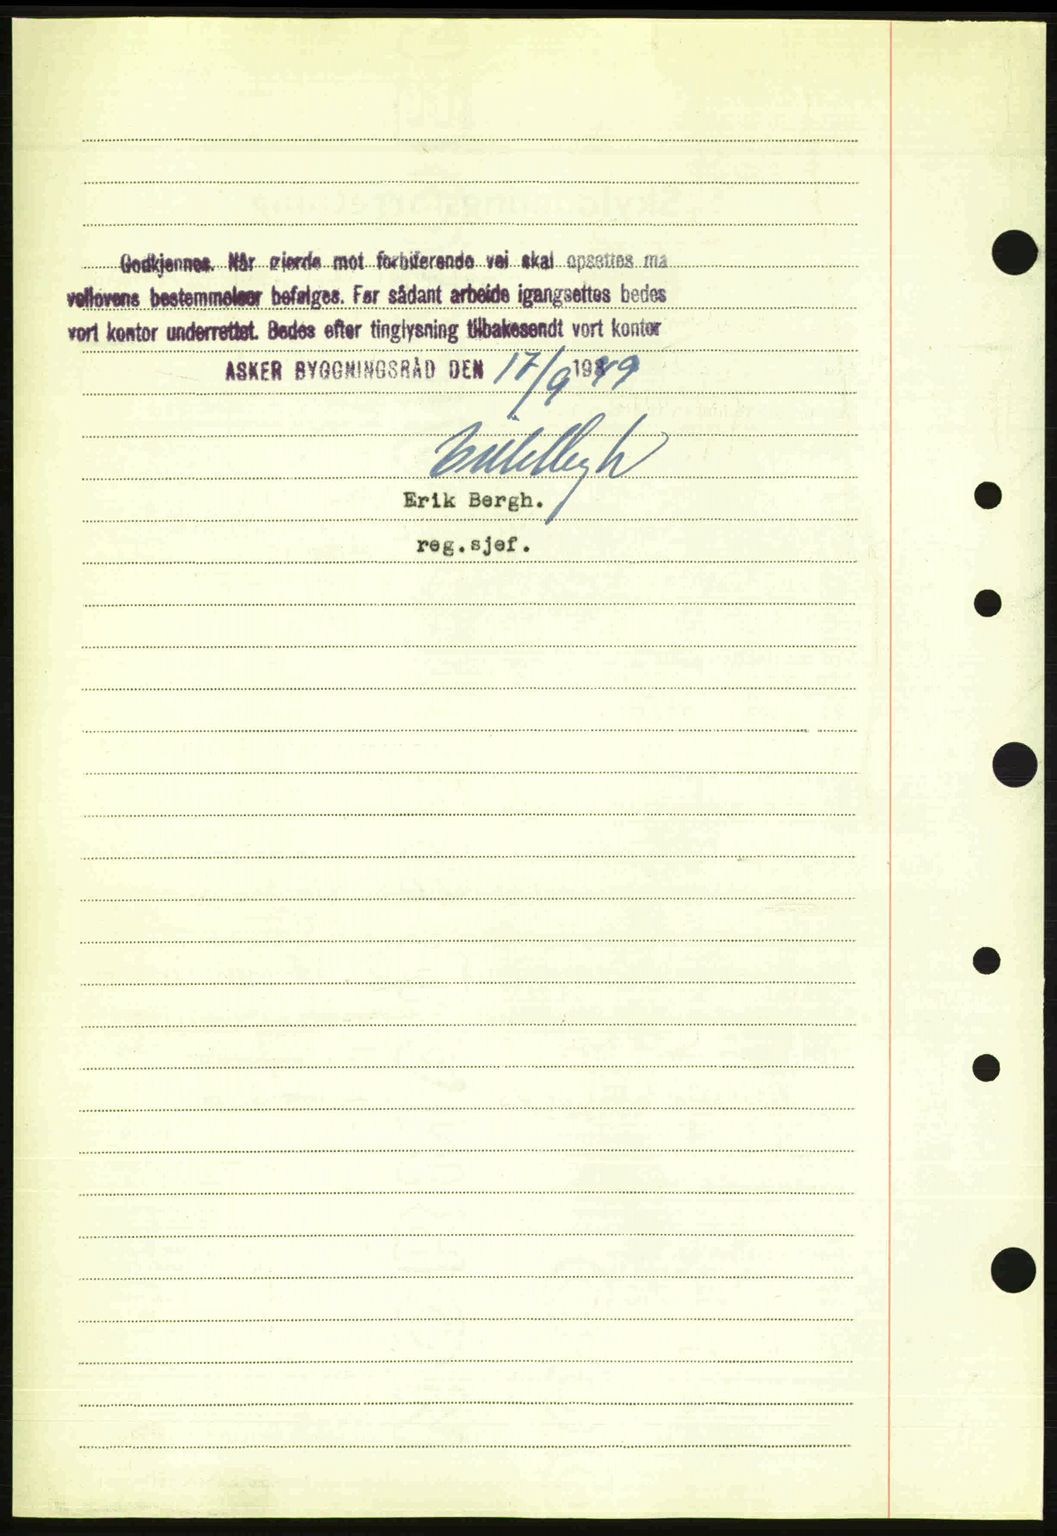 Godkjennes. Når gjerde mot forbiførende vei skal opsettes må
veilovens bestemmelser befølges. Før sådant arbeide igangsettes bedes
vort kontor underrettet. Bedes efter tinglysning tilbakesendt vort kontor
ASKER BYGGNINGSRÅD DEN 17/9 1949
Erik Bergh
Erik Bergh.
reg.sjef.